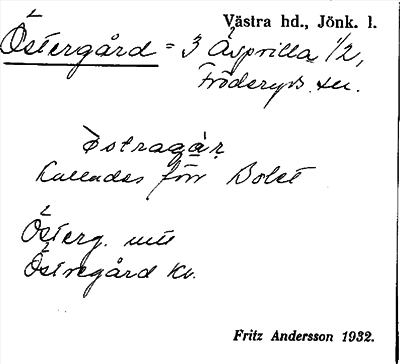 Västra hd., Jönk. l.
Östergård = 3 Äsprilla 1/2,
Fröderyds sn.
östragár
Kallades förr Bolet
Österg.
Östregård kv.
Fritz Andersson 1932.